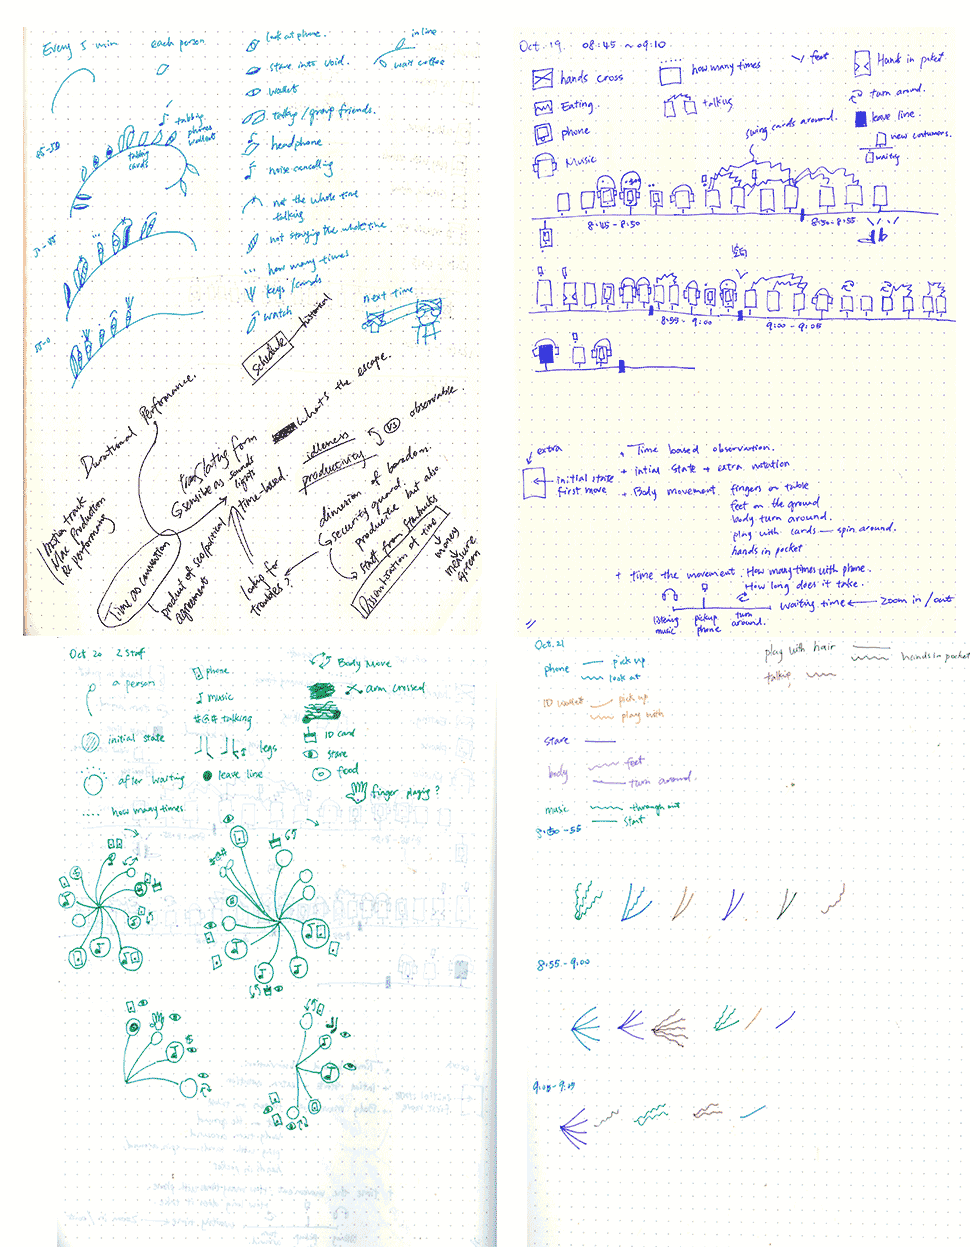 Every 5 min
each person
look at phone.
stare into void.
wallet
talking / group friends.
headphone
noise cancelling
not the whole time
talking
not staying the whole time
how many times
keys / cards
watch
in line
wait coffee
45-50
talking
phones
wallets
talking
cards
50-55
55-0
next time
Schedule
historical
Durational Performance.
what's the escape.
translating form
sensible as sounds
lights
time-based.
idleness
productivity
VS
observable.
dimension of boredom.
security guard.
productive but also
start from starbucks
Dissertisation of time
money
measure
system
Motion track
Mac Production
Re performing
Time as convention
product of sco/political
agreements
looking for
troubles?
Oct. 19. 08:45 ~ 09:10
hands cross
Eating.
phone
Music
how many times
talking
feet
Hands in pocket
turn around.
leave line.
new costumers.
waiting
swing cards around.
8:45 - 8:50
8:50 - 8:55
8:55 - 9:00
9:00 - 9:05
extra
initial state
first move
Time based observation.
+ intial state + extra notation
+ Body movement. fingers on table
feet on the ground
body turn around.
play with cards — spin around.
hands in pocket
+ time the movement. How many times with phone.
How long does it take.
listening
music
pickup
phone
turn
around.
waiting time
zoom in / out
Oct 20 2 Staf
a person
initial state
after waiting
.... how many times
phone
music
#@# talking
legs
leave line
Body Move
arm crossed
ID card
stare
food
finger playing?
Oct. 21
phone
pick up
look at
ID wallet
pick up
play with
stare
body
feet
turn around
music
throughout
start
play with hair
hands in pocket
talking
8:50 - 55
8:55 - 9:00
9:00 - 9:05